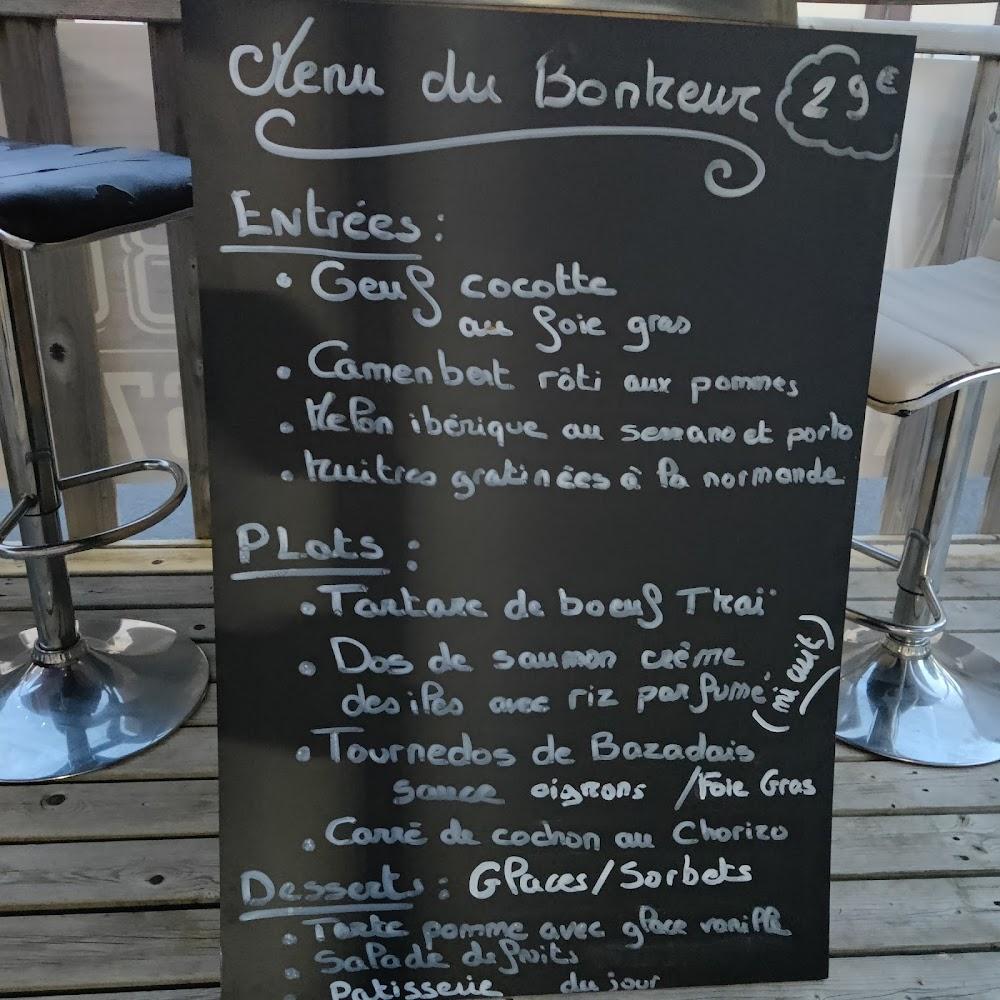 Menu du Bonheur 29€
Entrées :
• Oeuf cocotte
au foie gras
• Camembert rôti aux pommes
• Melon ibérique au serrano et porto
• Huitres gratinées à la normande
PLats :
• Tartare de boeuf Thaï
• Dos de saumon crème
des iles avec riz parfumé (mi cuit)
• Tournedos de Bazadais
sauce oignons /Foie Gras
• Carré de cochon au Chorizo
Desserts : Glaces/Sorbets
• Tarte pomme avec glace vanille
• Salade de fruits
Patisserie du jour